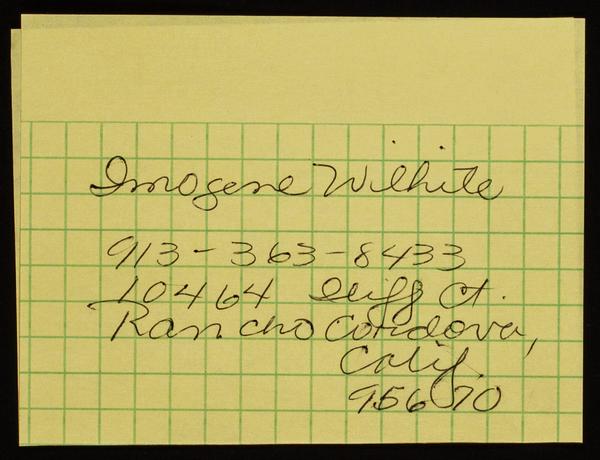 Imogene Wilhite
913-363-8433
10464 Iliff Ct.
Rancho Cordova,
Calif.
95670